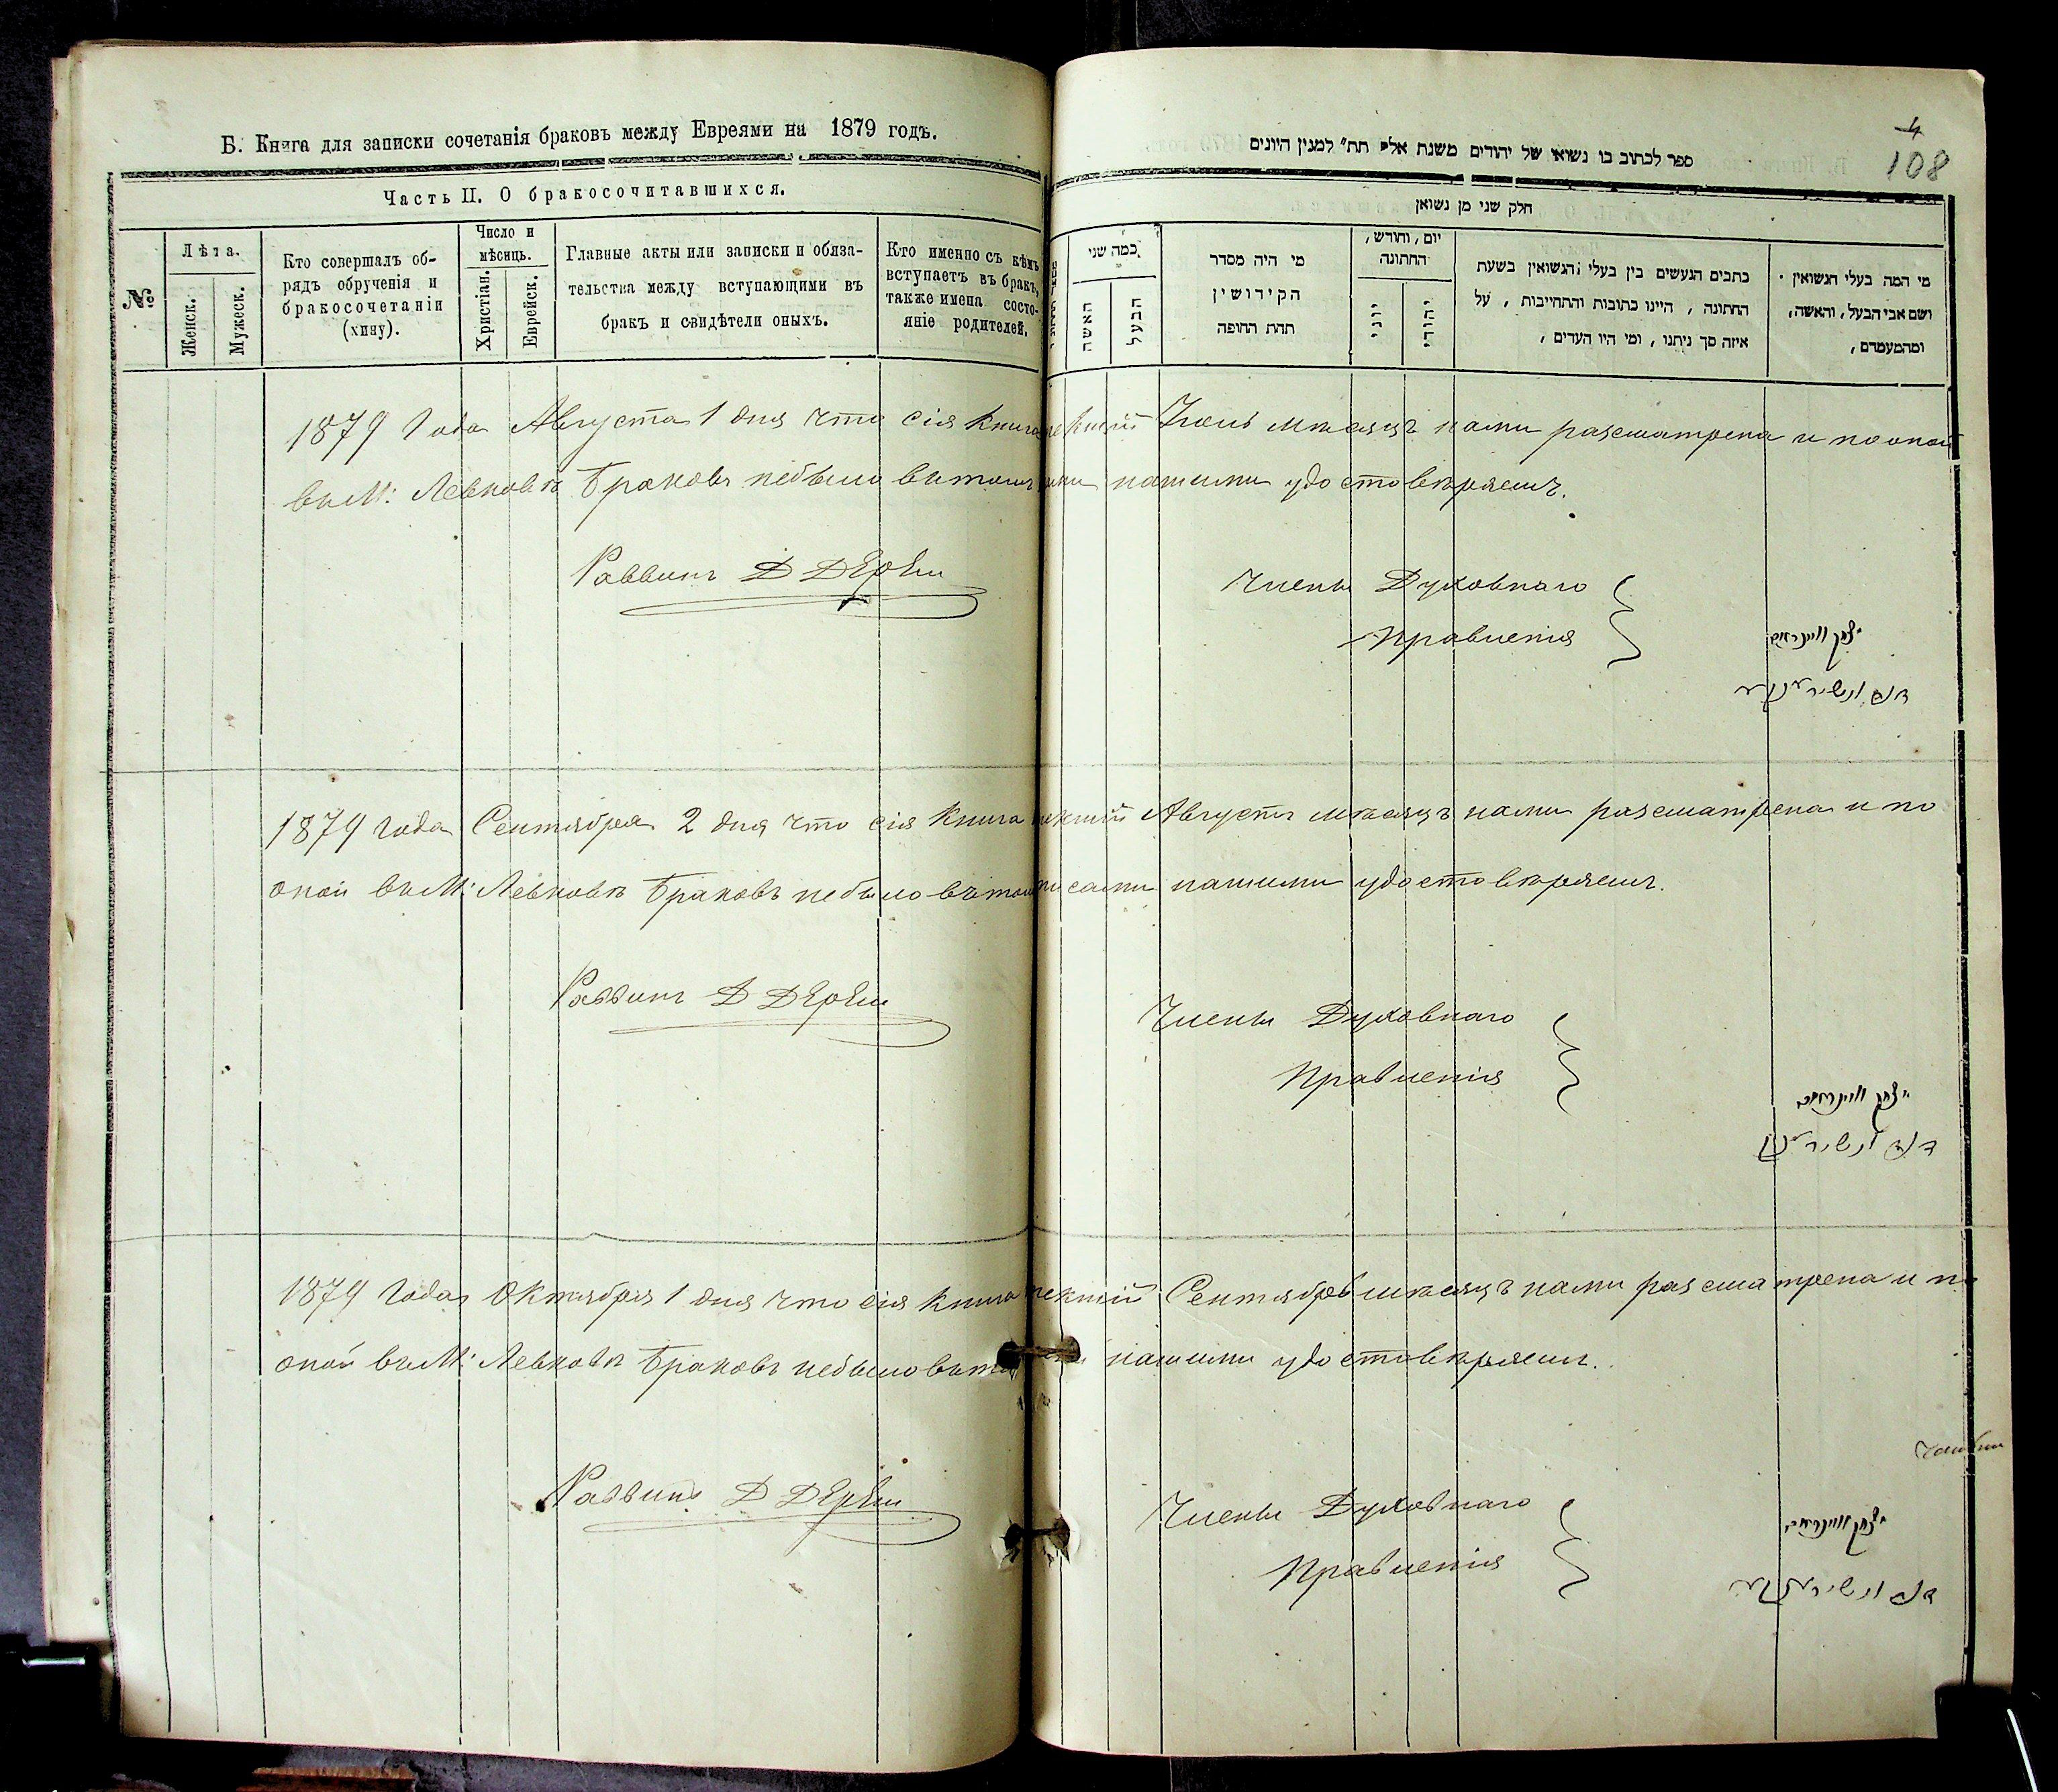 Б. Книга для записки сочетанія браковъ между Евреями на 1879 годъ.
Часть II. О бракосочитавшихся.
№
Лѣта.
Женск.
Мужеск.
Кто совершалъ об-
рядъ обрученія и
бракосочетаніи
(хипу).
Число и
мѣсяць.
Христіан.
Еврейск.
Главные акты или записки и обяза-
тельства между вступающими въ
бракъ и свидѣтели оныхъ.
Кто именно съ кѣмъ
вступаетъ въ бракъ,
также имена состо-
яніе родителей.
4
108
ספר לכתוב בו נשואי של יהודים משנת אלף תת״ למנין היונים
חלק שני מן נשואן
מי המה בעלי הנשואין
ושם אבי הבעל, והאשה,
ומהמעמדם,
כתבים הנעשים בין בעלי הנשואין בשעת
החתונה, היינו כתובות והתחייבות, על
איזה סך ניתנו, ומי היו העדים,
יום, וחודש,
החתונה
יהודי
יוני
מי היה מסדר
הקידושין
תחת החופה
כמה שני
הבעל
האשה
1879 Года Августа 1 дня что сія книга Іюль мѣсяцъ нами разсматрена и по оной
въ М: Левковѣ Браковъ небыло въ томъ нашими удостовѣряемъ.
Раввинъ Д
Члены Духовнаго
Правленія
יצחק
1879 года Сентября 2 дня что сія книга Августъ мѣсяцъ нами разсматрена и по
оной въ М: Левковѣ Браковъ небыло въ томъ нашими удостовѣряемъ.
Раввинъ Д
Члены Духовнаго
Правленія
יצחק
1879 Года Октября 1 дня что сія книга Сентябрь мѣсяцъ нами разсматрена и по
оной въ М: Левковѣ Браковъ небыло нашими удостовѣряемъ.
Раввинъ Д
Члены Духовнаго
Правленія
יצחק